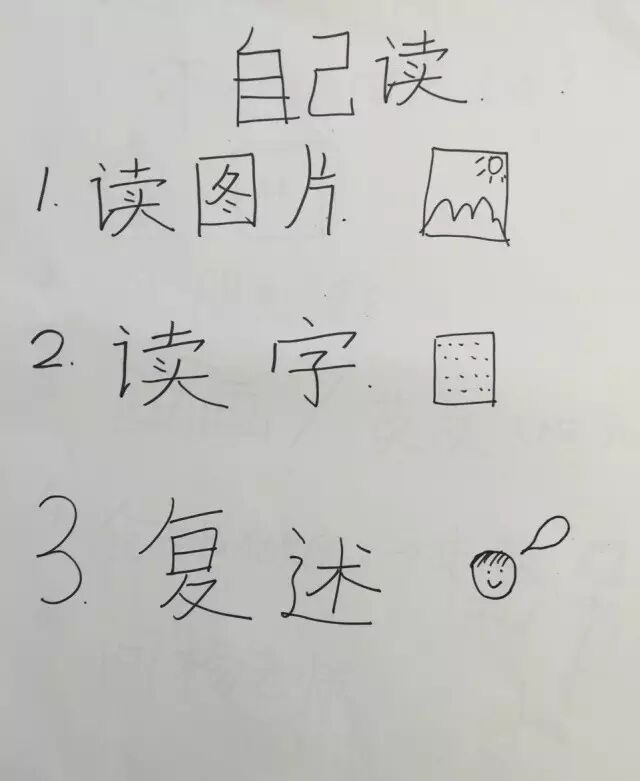 自己读.
1. 读图片.
2. 读字.
3. 复述